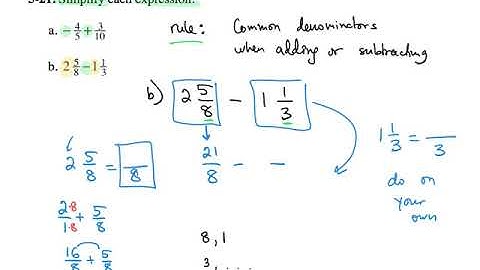 3-21. Simplify each expression.
a. -4/5 + 3/10
rule: Common denominators
when adding or subtracting
b. 2 5/8 - 1 1/3
b) 2 5/8 - 1 1/3
2 5/8 = /8
21/8 - -
1 1/3 = /3
do on
your
own
2·8/1·8 + 5/8
16/8 + 5/8
8, 1
3